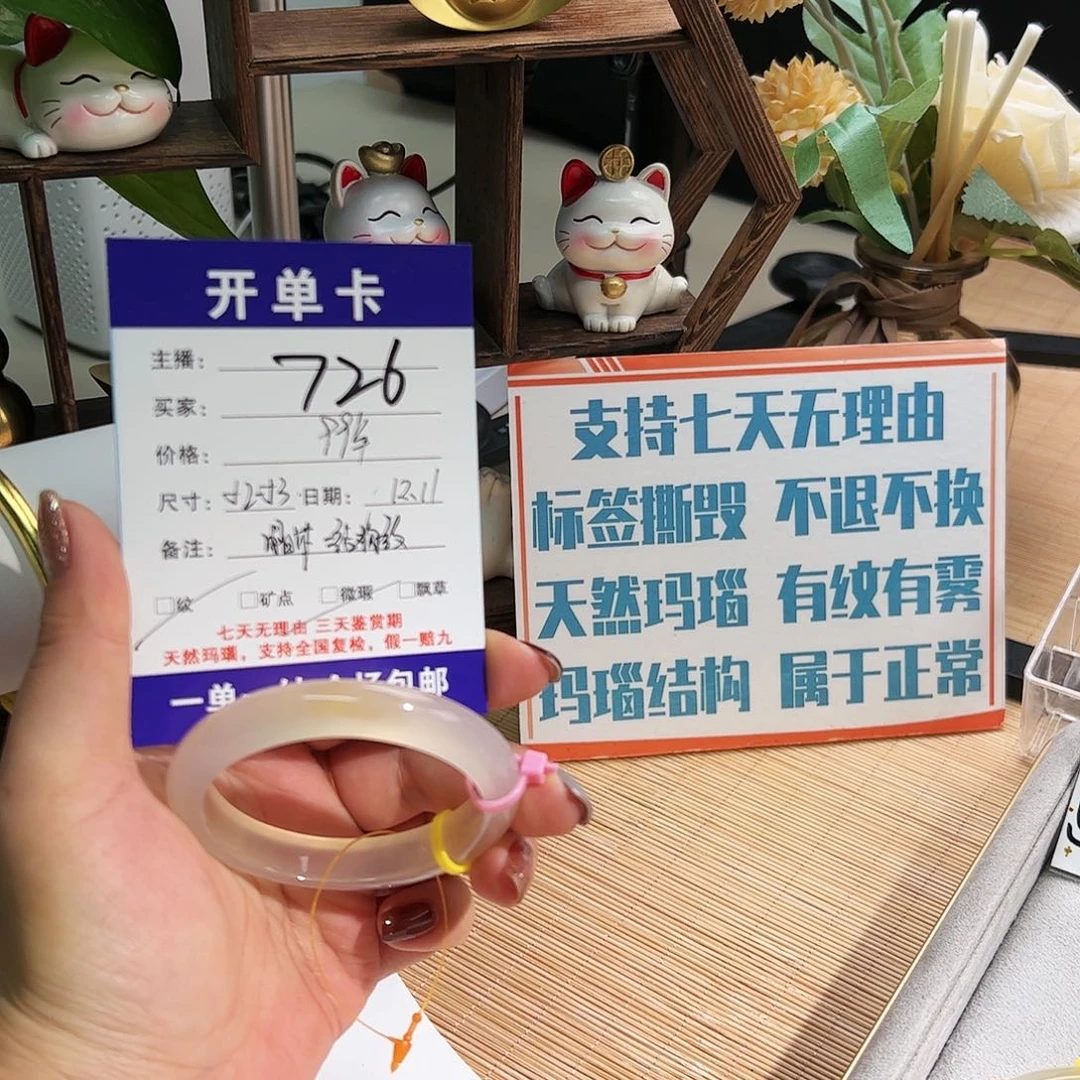 开单卡
主播：
726
买家：
价格：
尺寸： 日期： 12.11
备注：
□纹 □矿点 □微瑕 □飘草
七天无理由 三天鉴赏期
天然玛瑙，支持全国复检，假一赔九
一单 包邮
支持七天无理由
标签撕毁 不退不换
天然玛瑙 有纹有雾
玛瑙结构 属于正常